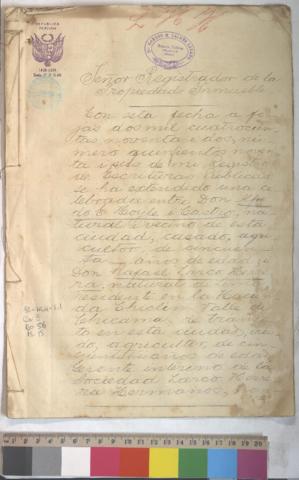 REPUBLICA
PERUANA
Señor Registrador de la
Propiedad Inmueble
Con esta fecha a fo-
jas dos mil cuatrocien-
tas noventa i dos, nú-
mero quinientos noven-
ta i seis de mi Registro
de Escrituras Públicas
se ha extendido una ce-
lebrada entre Don
do E Hoyle i Castro, na-
tural i vecino de esta
ciudad, casado, agri-
cultor, de cincuen-
ta años de edad i
Don Rafael Larco Herre-
ra, natural de
residente en la Hacien-
da Chiclin Valle de
Chicama, de tránsi-
to en esta ciudad, viu-
do, agricultor, de cin-
cuentinuno años de edad
Gerente interino de la
Sociedad Larco Herre-
ra Hermanos,